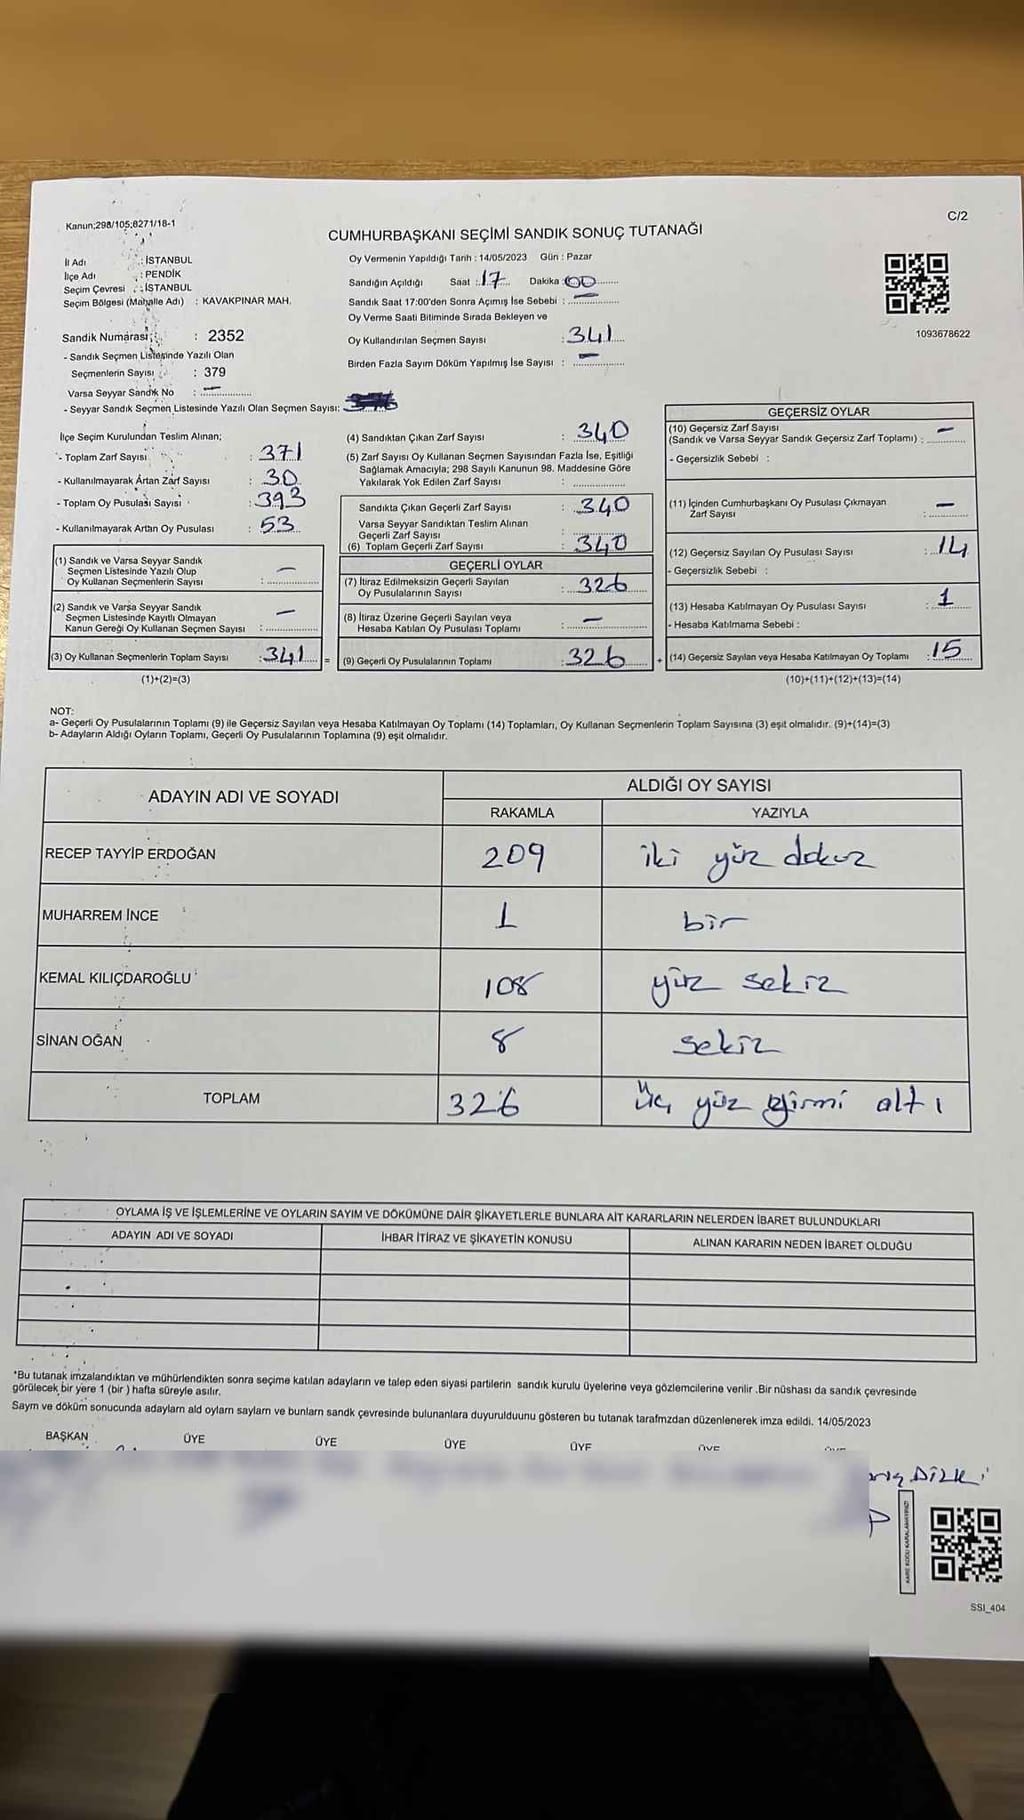 Kanun;298/105;8271/18-1
C/2
CUMHURBAŞKANI SEÇİMİ SANDIK SONUÇ TUTANAĞI
İl Adı : İSTANBUL
İlçe Adı : PENDİK
Seçim Çevresi : İSTANBUL
Seçim Bölgesi (Mahalle Adı) : KAVAKPINAR MAH.
Oy Vermenin Yapıldığı Tarih : 14/05/2023 Gün : Pazar
Sandığın Açıldığı Saat : 17 Dakika : 00
Sandık Saat 17:00'den Sonra Açımış İse Sebebi : —
Oy Verme Saati Bitiminde Sırada Bekleyen ve
Oy Kullandırılan Seçmen Sayısı : 341
Birden Fazla Sayım Döküm Yapılmış İse Sayısı : —
1093678622
Sandik Numarası : 2352
- Sandık Seçmen Listesinde Yazılı Olan
Seçmenlerin Sayısı : 379
Varsa Seyyar Sandık No : —
- Seyyar Sandık Seçmen Listesinde Yazılı Olan Seçmen Sayısı:
İlçe Seçim Kurulundan Teslim Alınan;
- Toplam Zarf Sayısı : 371
- Kullanılmayarak Artan Zarf Sayısı : 30
- Toplam Oy Pusulası Sayısı : 393
- Kullanılmayarak Artan Oy Pusulası : 53
(1) Sandık ve Varsa Seyyar Sandık
Seçmen Listesinde Yazılı Olup
Oy Kullanan Seçmenlerin Sayısı : —
(2) Sandık ve Varsa Seyyar Sandık
Seçmen Listesinde Kayıtlı Olmayan
Kanun Gereği Oy Kullanan Seçmen Sayısı : —
(3) Oy Kullanan Seçmenlerin Toplam Sayısı : 341 =
(1)+(2)=(3)
(4) Sandıktan Çıkan Zarf Sayısı : 340
(5) Zarf Sayısı Oy Kullanan Seçmen Sayısından Fazla İse, Eşitliği
Sağlamak Amacıyla; 298 Sayılı Kanunun 98. Maddesine Göre
Yakılarak Yok Edilen Zarf Sayısı :
Sandıkta Çıkan Geçerli Zarf Sayısı : 340
Varsa Seyyar Sandıktan Teslim Alınan
Geçerli Zarf Sayısı :
(6) Toplam Geçerli Zarf Sayısı : 340
GEÇERLİ OYLAR
(7) İtiraz Edilmeksizin Geçerli Sayılan
Oy Pusulalarının Sayısı : 326
(8) İtiraz Üzerine Geçerli Sayılan veya
Hesaba Katılan Oy Pusulası Toplamı : —
(9) Geçerli Oy Pusulalarının Toplamı : 326 +
GEÇERSİZ OYLAR
(10) Geçersiz Zarf Sayısı
(Sandık ve Varsa Seyyar Sandık Geçersiz Zarf Toplamı) : —
- Geçersizlik Sebebi :
(11) İçinden Cumhurbaşkanı Oy Pusulası Çıkmayan
Zarf Sayısı : —
(12) Geçersiz Sayılan Oy Pusulası Sayısı : 14
- Geçersizlik Sebebi :
(13) Hesaba Katılmayan Oy Pusulası Sayısı : 1
- Hesaba Katılmama Sebebi :
(14) Geçersiz Sayılan veya Hesaba Katılmayan Oy Toplamı : 15
(10)+(11)+(12)+(13)=(14)
NOT:
a- Geçerli Oy Pusulalarının Toplamı (9) ile Geçersiz Sayılan veya Hesaba Katılmayan Oy Toplamı (14) Toplamları, Oy Kullanan Seçmenlerin Toplam Sayısına (3) eşit olmalıdır. (9)+(14)=(3)
b- Adayların Aldığı Oyların Toplamı, Geçerli Oy Pusulalarının Toplamına (9) eşit olmalıdır.
ADAYIN ADI VE SOYADI ALDIĞI OY SAYISI
RAKAMLA YAZIYLA
RECEP TAYYİP ERDOĞAN 209 iki yüz dokuz
MUHARREM İNCE 1 bir
KEMAL KILIÇDAROĞLU 108 yüz sekiz
SİNAN OĞAN 8 sekiz
TOPLAM 326 Üç yüz yirmi altı
OYLAMA İŞ VE İŞLEMLERİNE VE OYLARIN SAYIM VE DÖKÜMÜNE DAİR ŞİKAYETLERLE BUNLARA AİT KARARLARIN NELERDEN İBARET BULUNDUKLARI
ADAYIN ADI VE SOYADI İHBAR İTİRAZ VE ŞİKAYETİN KONUSU ALINAN KARARIN NEDEN İBARET OLDUĞU
*Bu tutanak imzalandıktan ve mühürlendikten sonra seçime katılan adayların ve talep eden siyasi partilerin sandık kurulu üyelerine veya gözlemcilerine verilir .Bir nüshası da sandık çevresinde
görülecek bir yere 1 (bir ) hafta süreyle asılır.
Saym ve döküm sonucunda adaylarn ald oylarn saylarn ve bunlarn sandk çevresinde bulunanlara duyurulduunu gösteren bu tutanak tarafmzdan düzenlenerek imza edildi. 14/05/2023
BAŞKAN ÜYE ÜYE ÜYE ÜYE
KARE KODU KARALAMAYINIZ!
SSI_404